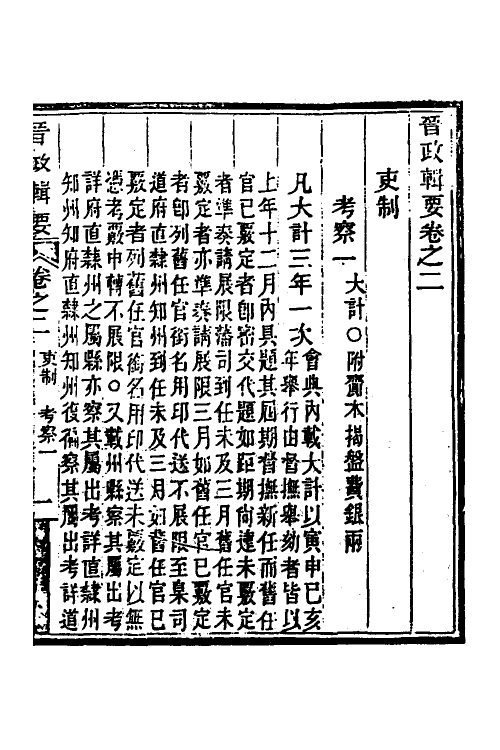 晉政輯要卷之二
吏制
考察一 大計〇附齎本揭盤費銀兩
凡大計三年一次 會典內載大計以寅申巳亥
年舉行由督撫舉劾者皆以
上年十二月內具題其屆期督撫新任而舊任
官已覈定者卽密交代題如距期尙遠未覈定
者準奏請展限藩司到任未及三月舊任官未
覈定者亦準奏請展限三月如舊任官已覈定
者卽列舊任官銜名用印代送不展限至臬司
道府直隸州知州到任未及三月如舊任官已
覈定者列舊任官銜名用印代送未覈定以無
憑考覈申轉不展限〇又載州縣察其屬出考
詳府直隸州之屬縣亦察其屬出考詳直隸州
知州知府直隸州知州復徧察其屬出考詳道
晉政輯要 卷之二 吏制 考察一 一